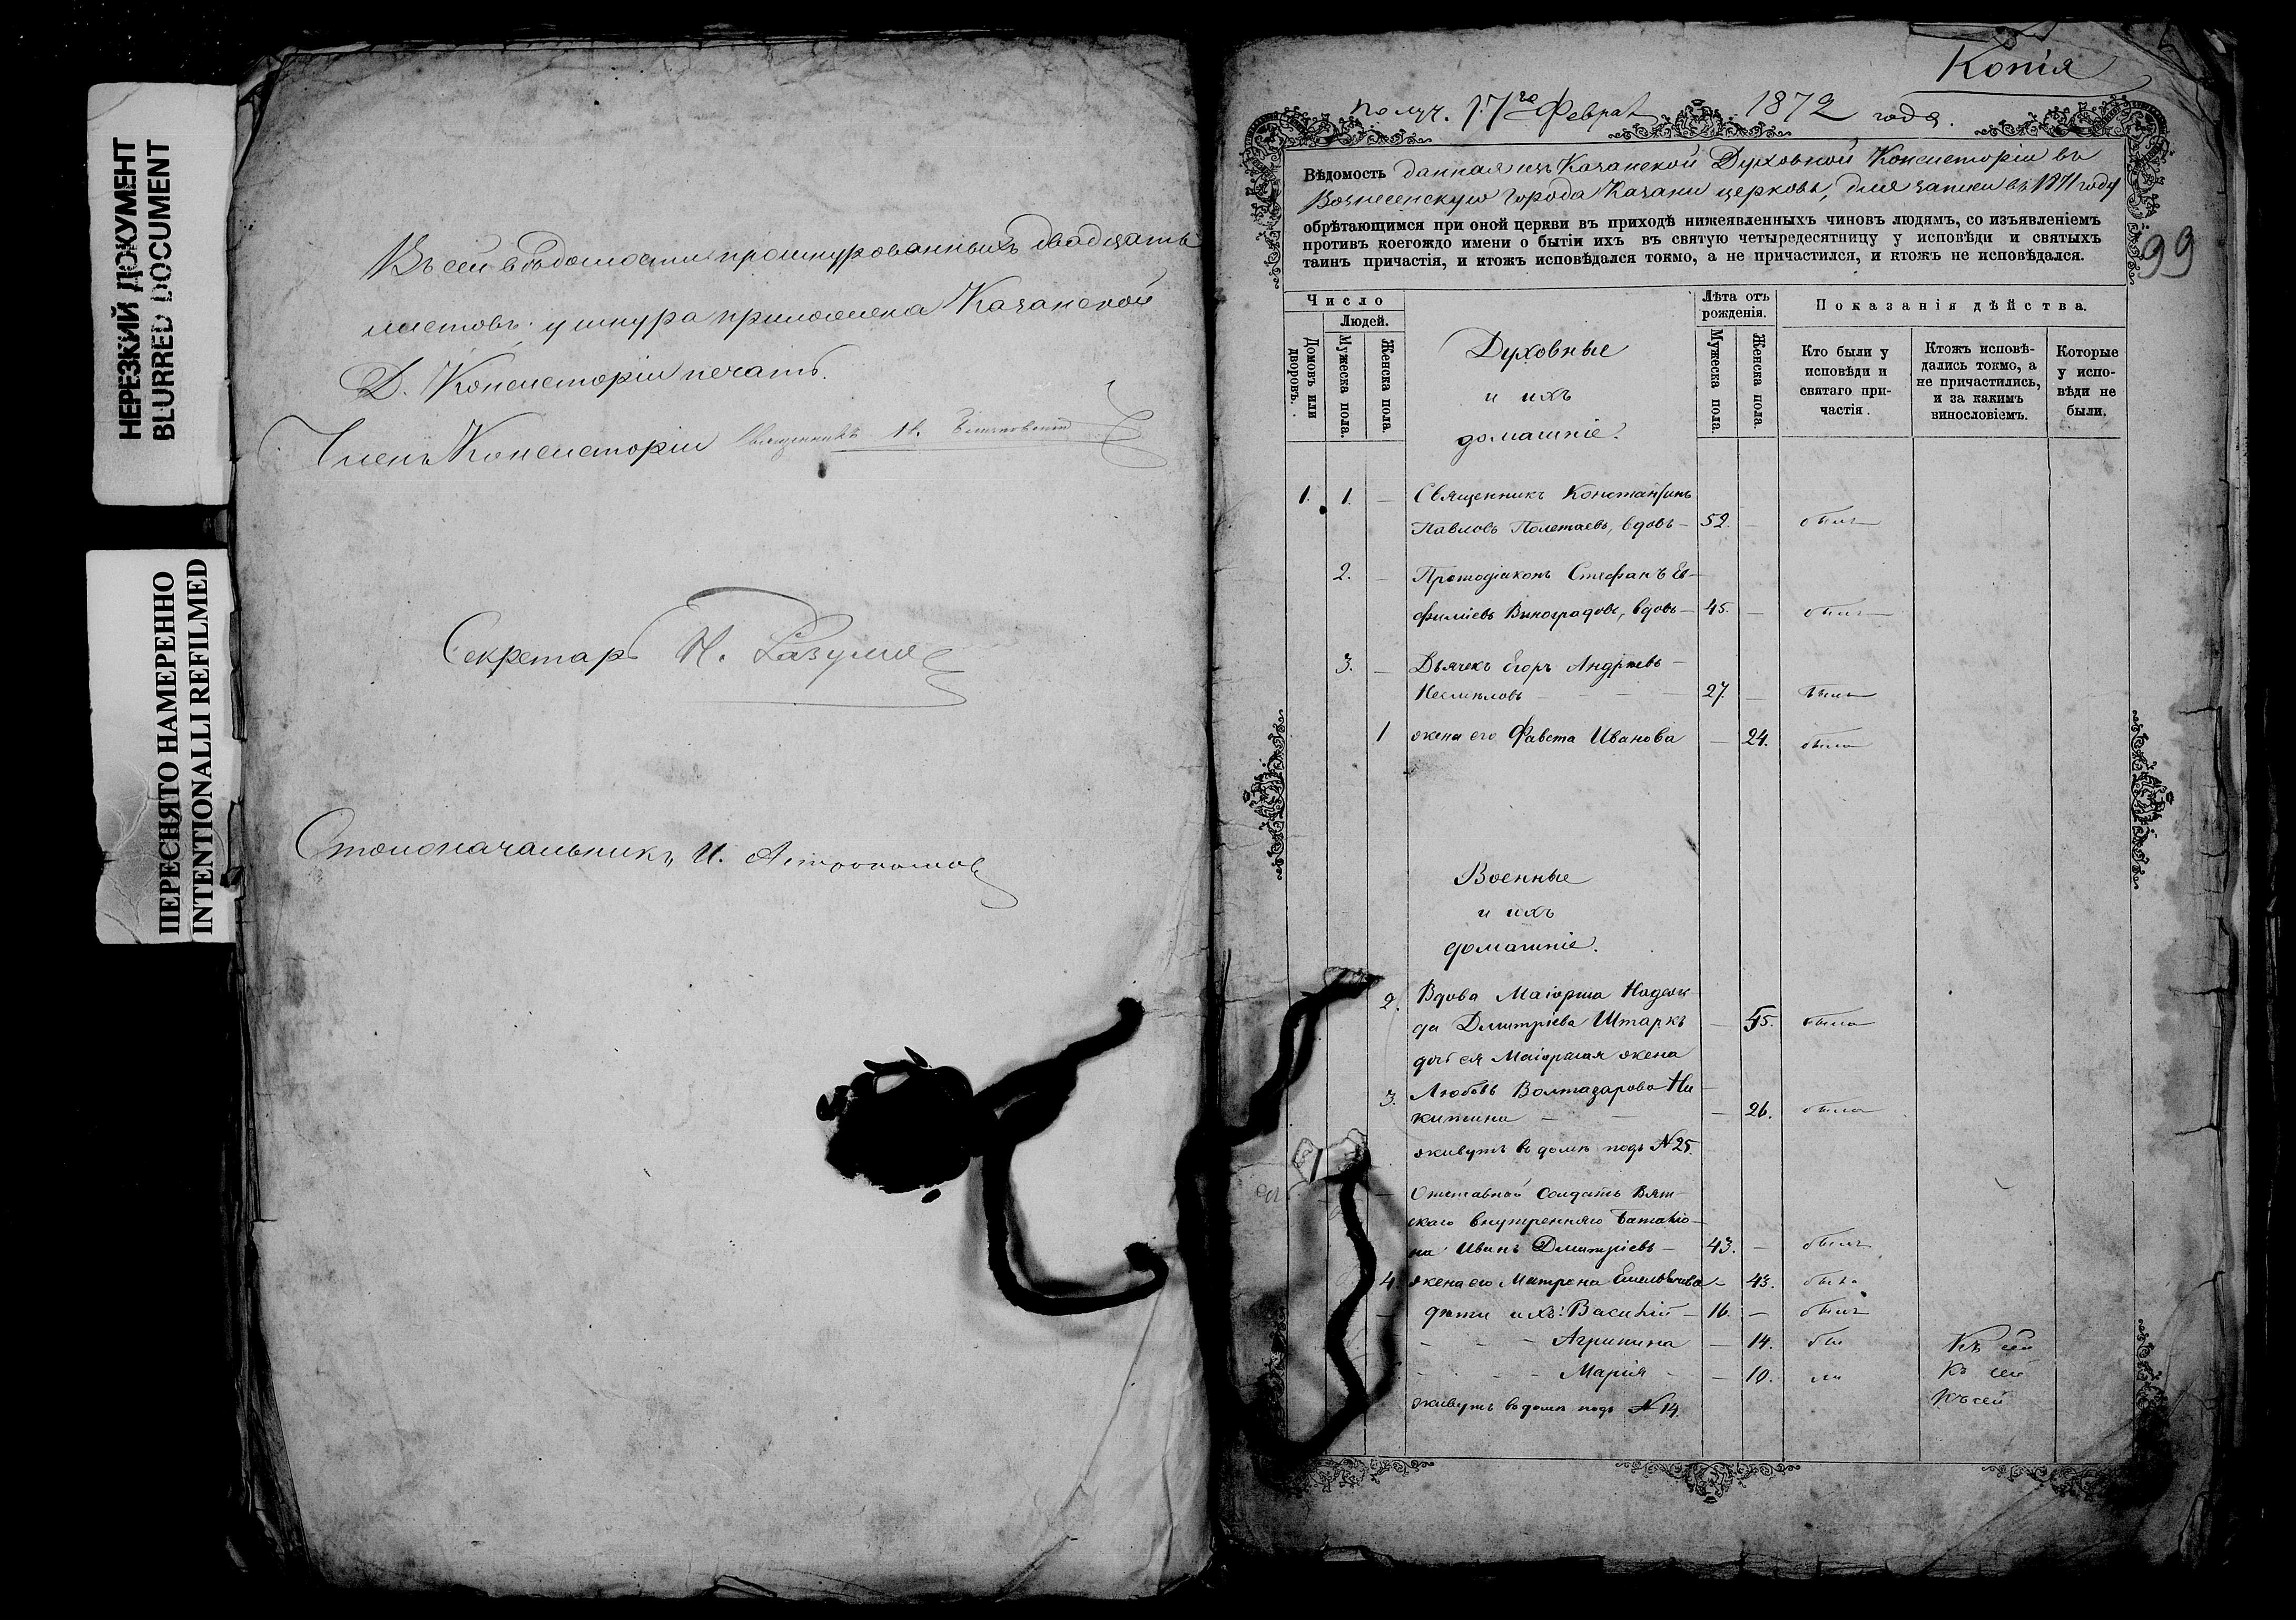 НЕРЕЗКИЙ ДОКУМЕНТ
BLURRED DOCUMENT
ПЕРЕСНЯТО НАМЕРЕННО
INTENTIONALLI REFILMED
Въ сей вѣдомости прошнурованныхъ двадцать
листовъ; у шнура приложена Казанской
Д. Консисторіи печать.
Членъ Консисторіи Священникъ
Секретарь Н. Разумов
Столоначальникъ И. Астрономов
Копія
получ. 17го Феврал 1872 года.
99
Вѣдомость данная изъ Казанской Духовной Консисторіи въ
Вознесенскую города Казани церковь, для записи въ 1871 году
обрѣтающимся при оной церкви въ приходѣ нижеявленныхъ чиновъ людямъ, со изъявленіемъ
противъ коегождо имени о бытіи ихъ въ святую четыредесятницу у исповѣди и святыхъ
таинъ причастія, и ктожъ исповѣдался токмо, а не причастился, и ктожъ не исповѣдался.
Число
Людей.
Домовъ или дворовъ.
Мужеска пола.
Женска пола.
Духовные
и ихъ
домашніе.
Лѣта отъ рожденія.
Мужеска пола.
Женска пола.
Показанія дѣйства.
Кто были у исповѣди и святаго причастія.
Ктожъ исповѣ-
дались токмо, а
не причастились,
и за какимъ
винословіемъ.
Которые
у испо-
вѣди не
были.
1. 1. — Священникъ Константинъ
Павловъ Полетаевъ, вдовъ — 52. — былъ
2. — Протодіаконъ Стефанъ Ев-
фиміевъ Виноградовъ, вдовъ — 45. — былъ
3. — Дьячекъ Егоръ Андреевъ —
Несмѣловъ — 27. — былъ
1 жена его Фавста Иванова — 24. была
Военные
и ихъ
домашніе.
2. Вдова Маіорша Надеж-
да Дмитріева Штаркъ — 45. была
дочь ея Маіорская жена
3. Любовь Валтазарова Ни-
китина — — 26. была
живутъ въ домѣ подъ №25.
— Отставной солдатъ Вят-
скаго внутренняго баталіо-
на Иванъ Дмитріевъ — 43. — былъ
4. жена его Матрона Емельянова — 43. была
— дѣти ихъ: Василій — 16. — былъ
— — — Агрипина — 14. бы Къ сей
— — — Марія — — 10. ли Къ сей
живутъ въ домѣ подъ №14. Къ сей